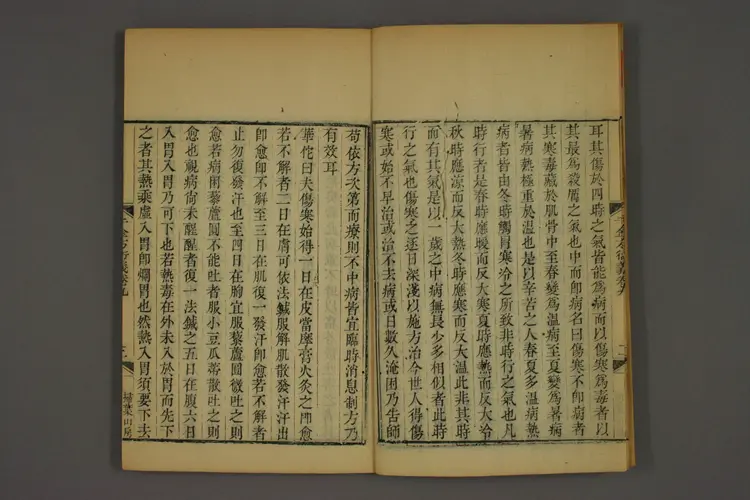 耳其傷於四時之氣皆能爲病而以傷寒爲毒者以
其最爲殺厲之氣也中而即病名曰傷寒不即病者
其寒毒藏於肌骨中至春變爲溫病至夏變爲暑病
暑病熱極重於溫也是以辛苦之人春夏多溫病熱
病者皆由冬時觸冒寒冷之所致非時行之氣也凡
時行者是春時應暖而反大寒夏時應熱而反大冷
秋時應涼而反大熱冬時應寒而反大溫此非其時
而有其氣是以一歲之中病無長少多相似者此時
行之氣也傷寒之逐日深淺以施方治今世人得傷
寒或始不早治或治不主病或日數久淹困乃告師
苟依方次第而療則不中病皆宜臨時消息制方乃
有效耳
華佗曰夫傷寒始得一日在皮當摩膏火灸之即愈
若不解者二日在膚可依法鍼服解肌散發汗汗出
即愈即不解至三日在肌復一發汗即愈若不解者
止勿復發汗也至四日在胸宜服藜蘆圓微吐之則
愈若病困藜蘆圓不能吐者服小豆瓜蒂散吐之則
愈也視病尚未醒醒者復一法鍼之五日在腹六日
入胃入胃乃可下也若熱毒在外未入於胃而先下
之者其熱乘虛入胃即爛胃也然熱入胃須要下去
千金方衍義卷九
掃葉山房